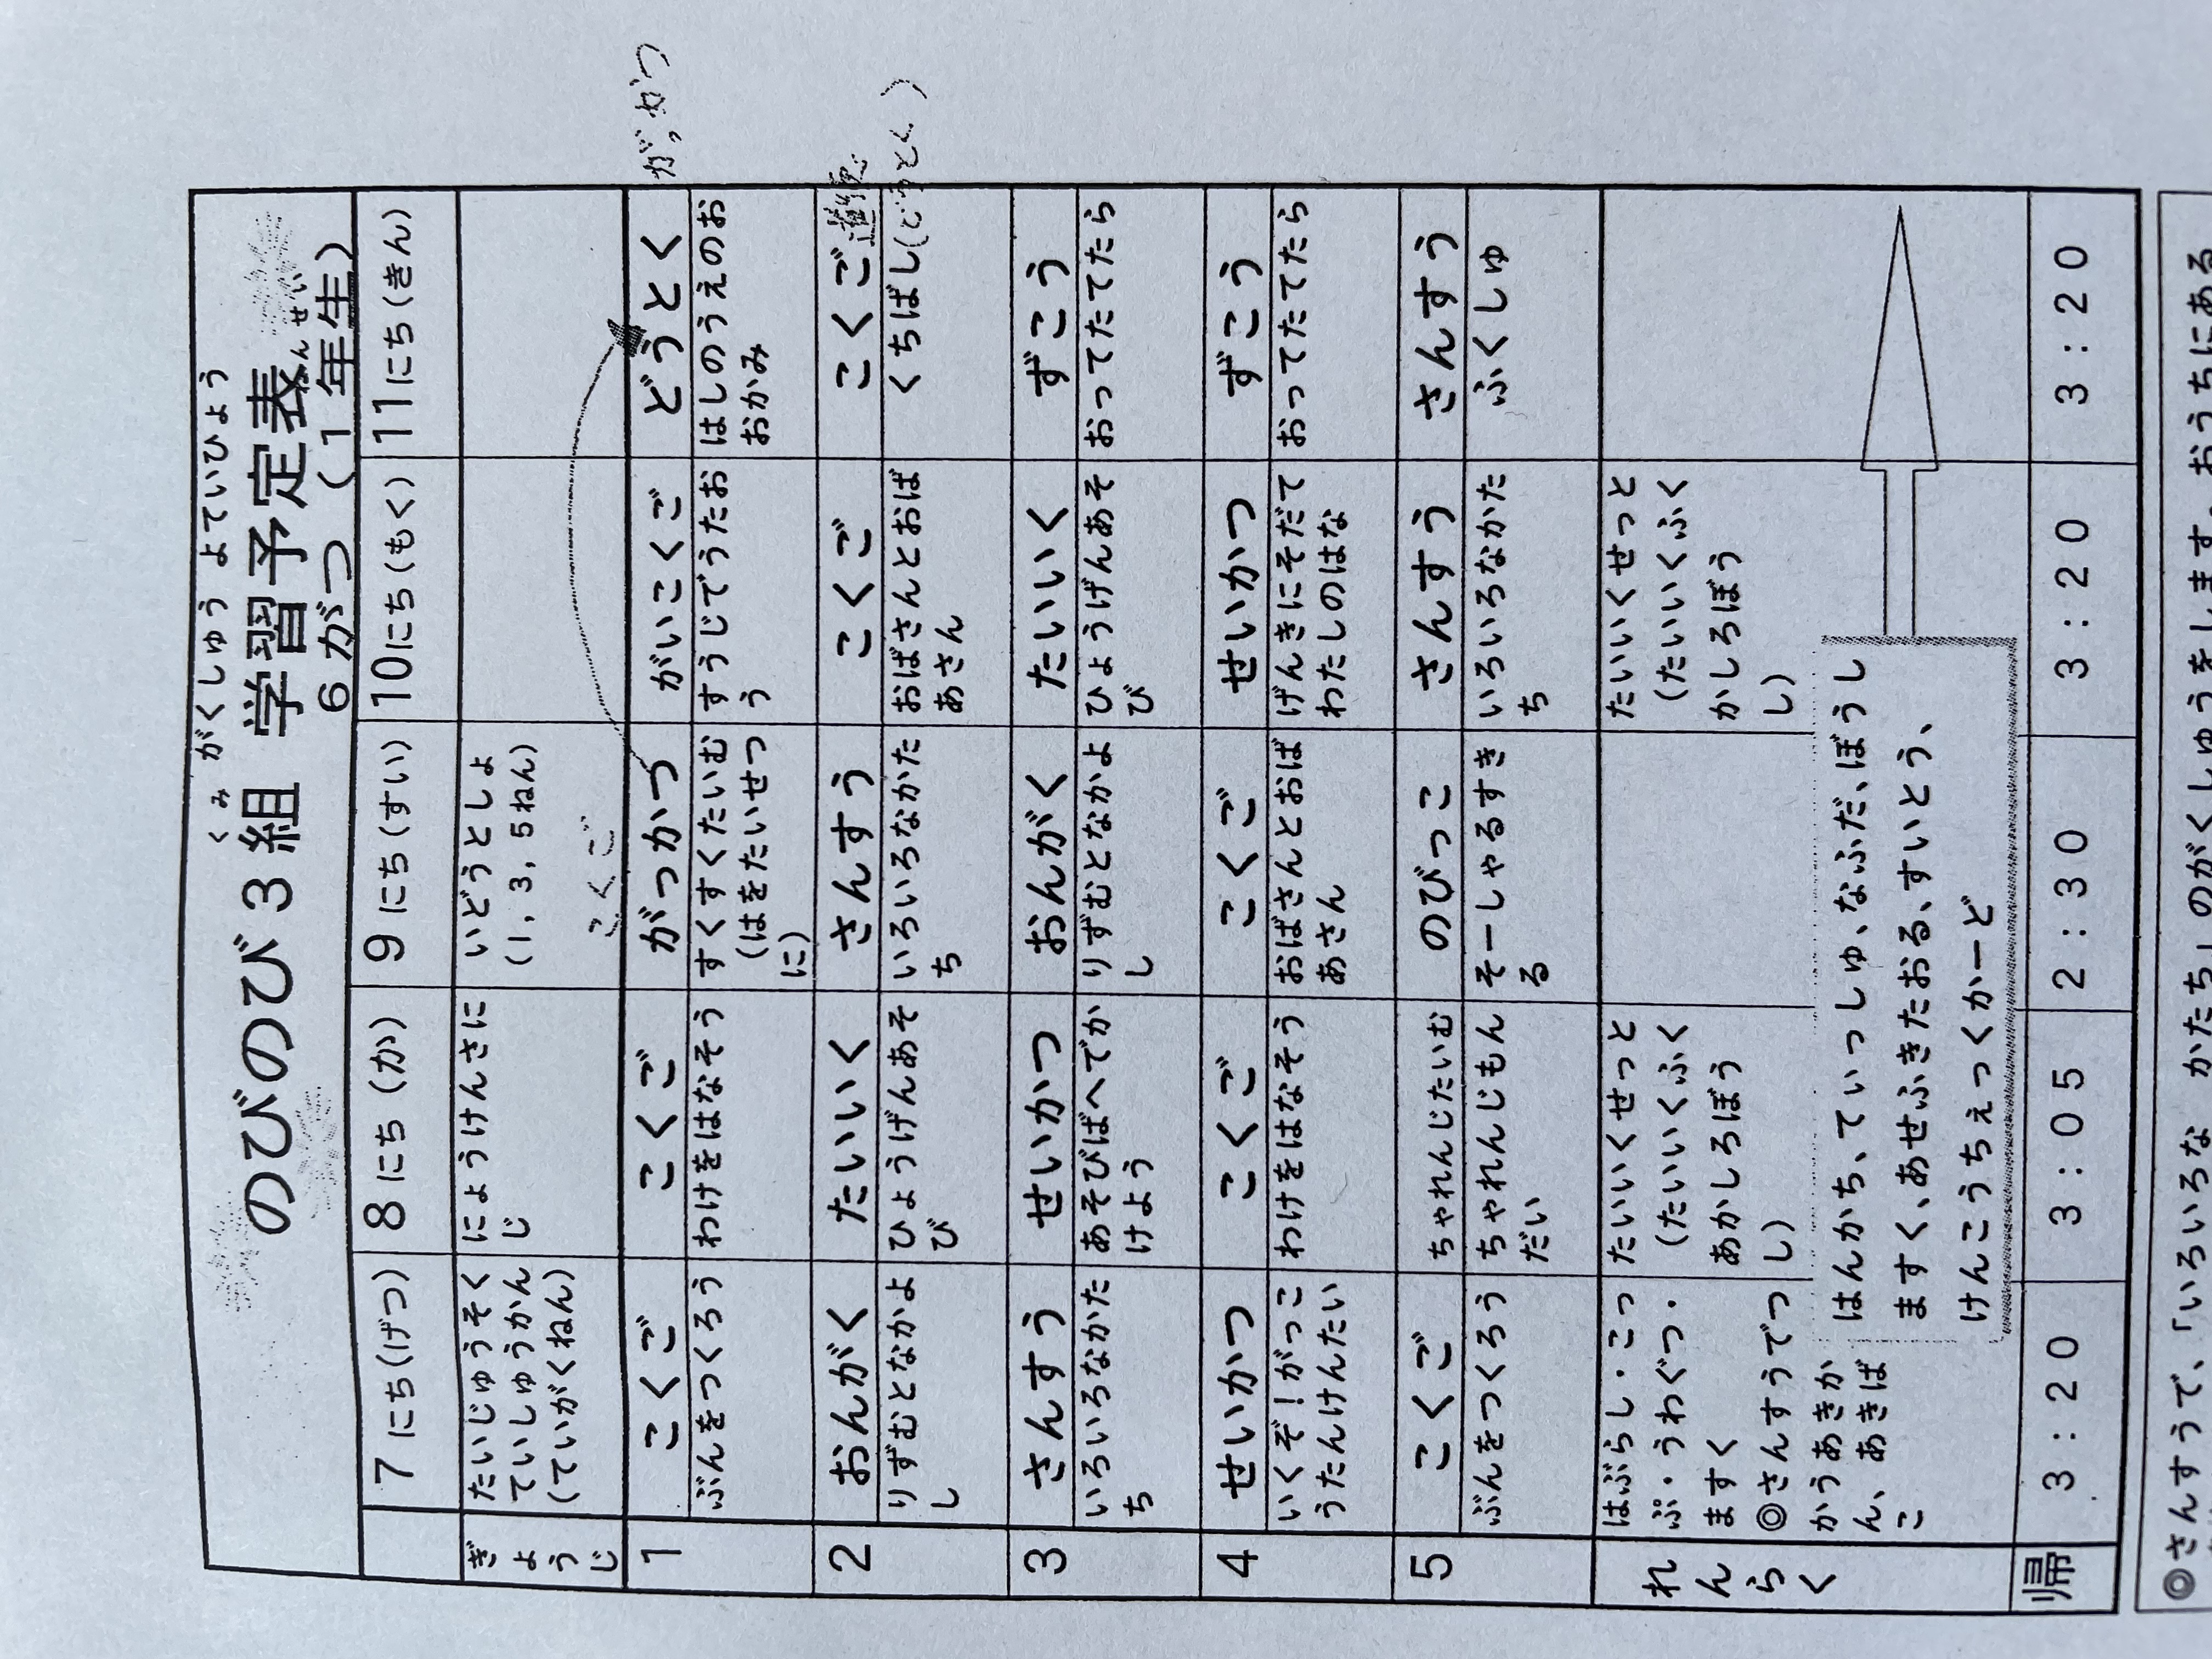 くみ がくしゅう よていひょう
のびのび3組 学習予定表
6がつ (1年生)
ねんせい
7にち(げつ) 8にち(か) 9にち(すい) 10にち(もく) 11にち(きん)
ぎょうじ
たいじゅうそく
ていしゅうかん
(ていがくねん)
にょうけんさに
じ
いどうとしょ
(1, 3, 5ねん)
こくご
1
こくご
ぶんをつくろう
こくご
わけをはなそう
がっかつ
すくすくたいむ
(はをたいせつ
に)
がいこくご
すうじでうたお
う
どうとく
はしのうえのお
おかみ
がっかつ
2
おんがく
りずむとなかよ
し
たいいく
ひょうげんあそ
び
さんすう
いろいろなかた
ち
こくご
おばさんとおば
あさん
こくご
くちばし(どうとく)
3
さんすう
いろいろなかた
ち
せいかつ
あそびばへでか
けよう
おんがく
りずむとなかよ
し
たいいく
ひょうげんあそ
び
ずこう
おってたてたら
4
せいかつ
いくぞ!がっこ
うたんけんたい
こくご
わけをはなそう
こくご
おばさんとおば
あさん
せいかつ
げんきにそだて
わたしのはな
ずこう
おってたてたら
5
こくご
ぶんをつくろう
ちゃれんじたいむ
ちゃれんじもん
だい
のびっこ
そーしゃるすき
る
さんすう
いろいろなかた
ち
さんすう
ふくしゅ
れんらく
はぶらし・こっ
ぷ・うわぐつ・
ますく
◎さんすうでつ
かうあきか
ん、あきば
こ
たいいくせっと
(たいいくふく
あかしろぼう
し)
たいいくせっと
(たいいくふく
かしろぼう
し)
はんかち、ていっしゅ、なふだ、ぼうし
ますく、あせふきたおる、すいとう、
けんこうちぇっくかーど
帰 3:20 3:05 2:30 3:20 3:20
◎さんすうで、「いろいろな かたち」のがくしゅうをします。おうちにある